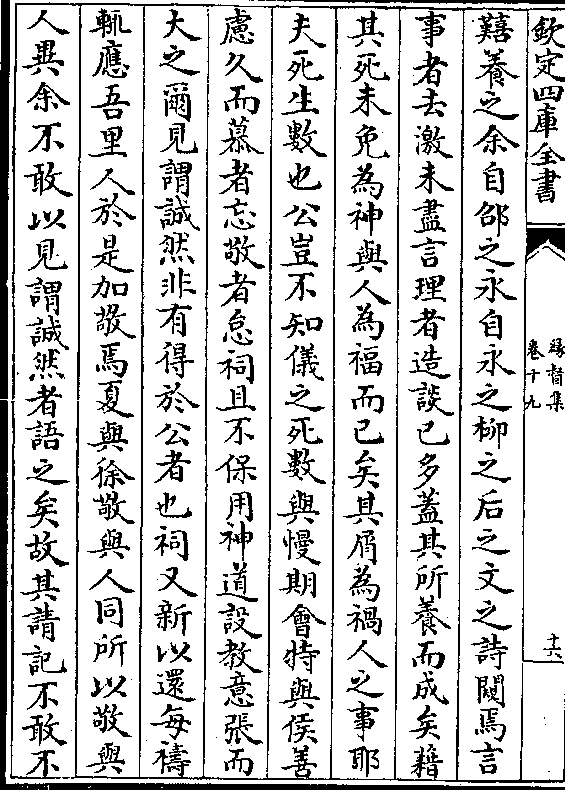 欽定四庫全書
緣督集
卷十九
十六
囏養之余自邵之永自永之柳之后之文之詩閱焉言
事者去激未盡言理者造談已多蓋其所養而成矣藉
其死未免為神與人為福而已矣其屑為禍人之事耶
夫死生數也公豈不知儀之死數與慢期會特與侯善
慮久而慕者忘敬者怠祠且不保用神道設教意張而
大之爾見謂誠然非有得於公者也祠又新以還每禱
輒應吾里人於是加敬焉夏與徐敬與人同所以敬與
人異余不敢以見謂誠然者語之矣故其請記不敢不